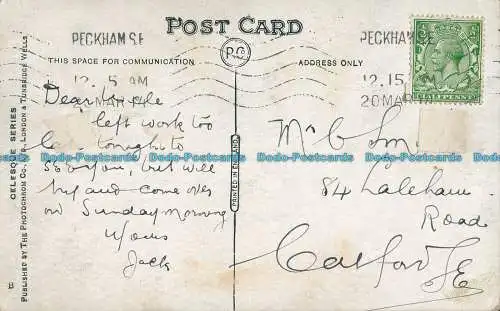 POST CARD
PECKHAM S.E
PECKHAM S.E
P.C
THIS SPACE FOR COMMUNICATION
ADDRESS ONLY
12.15 AM
20 MAR
12.15 AM
20 MAR
HALFPENNY
Dear
left work too
tonight to
but will
try and come over
on Sunday morning
Yours
Jack
Mr
84 Laleham
Road
Catford SE
CELESQUE SERIES
PUBLISHED BY THE PHOTOCHROM CO., LTD., LONDON & TUNBRIDGE WELLS
PRINTED IN ENGLAND
B
Dodo-Postcards Dodo-Postcards Dodo-Postcards Dodo-Postcards Dodo-Postcards